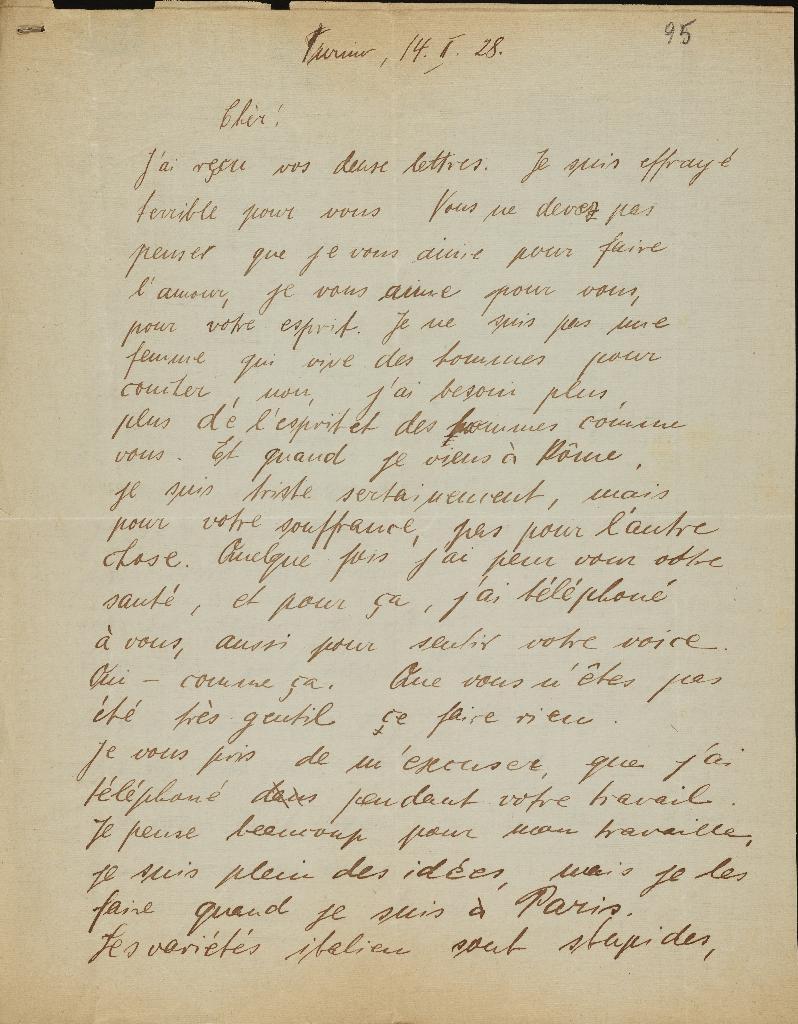 95
Turino, 14. I. 28.
Chèr!
J'ai reçu vos deuse lettres. Je suis effrayé
terrible pour vous Vous ne devez pas
penser que je vous aime pour faire
l'amour, je vous aime pour vous,
pour votre esprit. Je ne suis pas une
femme qui vive des hommes pour
coucher, non, j'ai besoin plus,
plus dé l'esprit et des hommes comme
vous. Et quand je viens à Rôme,
je suis triste sertainement, mais
pour votre souffrance, pas pour l'autre
chose. Quelque fois j'ai peur vour votre
santé, et pour ça, j'ai téléphoné
à vous, aussi pour sentir votre voice.
Oui – comme ça. Que vous n'êtes pas
été très gentil çe faire rien.
Je vous pris de m'excuser, que j'ai
téléphoné dans pendant votre travail.
Je pense beaucoup pour mon travaille,
je suis plein des idées, mais je les
faire quand je suis à Paris.
Les variétés italien sont stupides,